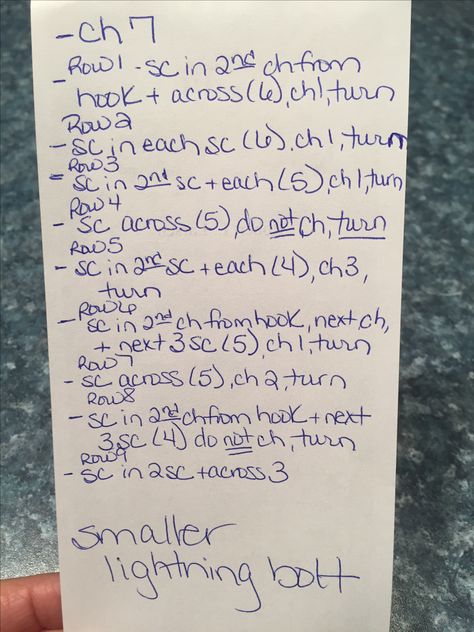 - ch 7
Row 1 - sc in 2nd ch from
- hook + across (6), ch 1, turn
Row 2
- sc in each sc (6), ch 1, turn
Row 3
- sc in 2nd sc + each (5), ch 1, turn
Row 4
- sc across (5), do not ch, turn
Row 5
- sc in 2nd sc + each (4), ch 3,
turn
Row 6
- sc in 2nd ch from hook, next ch,
+ next 3 sc (5), ch 1, turn
Row 7
- sc across (5), ch 2, turn
Row 8
- sc in 2nd ch from hook + next
3 sc (4) do not ch, turn
Row 9
- sc in 2 sc + across 3
smaller
lightning bolt